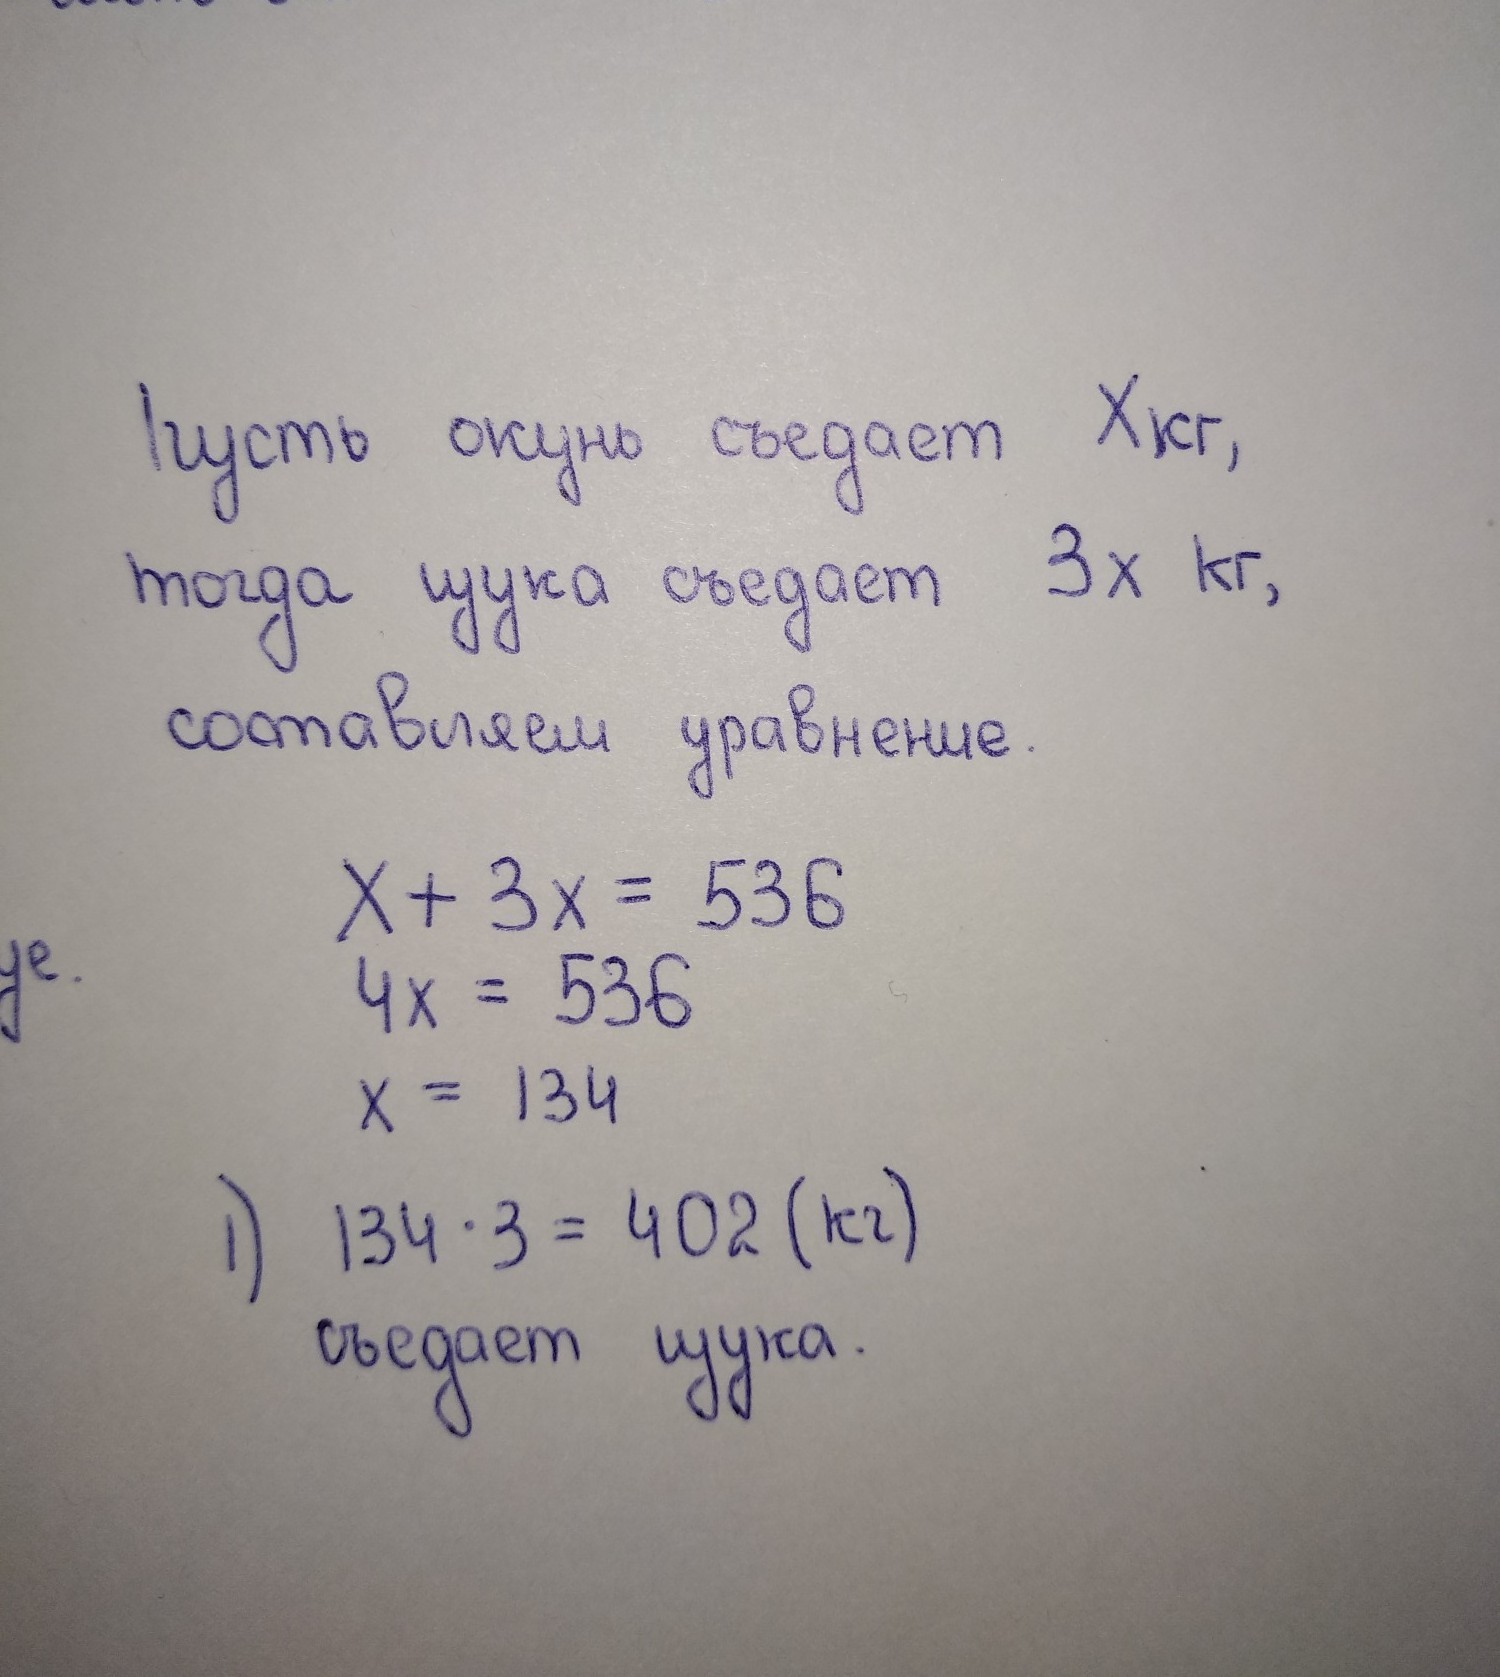 Пусть окунь съедает X кг,
тогда щука съедает 3x кг,
составляем уравнение.
X + 3x = 536
4x = 536
x = 134
1) 134 · 3 = 402 (кг)
съедает щука.